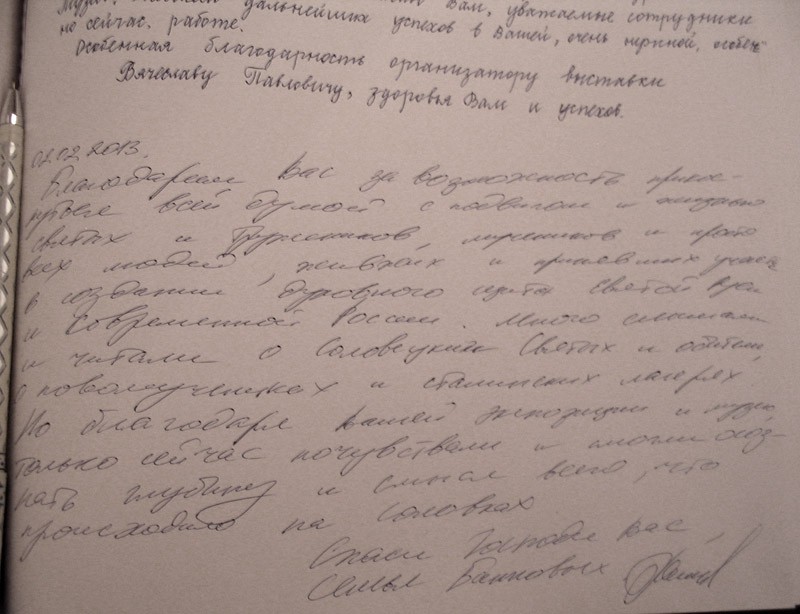 Вам, уважаемые сотрудники
дальнейших успехов в Вашей, очень нервной, особен
но сейчас, работе.
Особенная благодарность организатору выставки
Вячеславу Павловичу, здоровья Вам и успехов.
02.02.2013.
Благодарим Вас за возможность прикос-
всей душой с подвигом и
святых и тружеников, мучеников и просто
всех людей, живших и принявших участ
в создании духовного щита Святой
и современной России. Много слышали
и читали о Соловецких Святых и обители,
о новомучениках и сталинских лагерях
Но благодаря Вашей экспозиции и музею
только сейчас почувствовали и смогли осоз-
нать глубину и смысл всего, что
происходило на Соловках
Спаси Господи Вас,
Семья